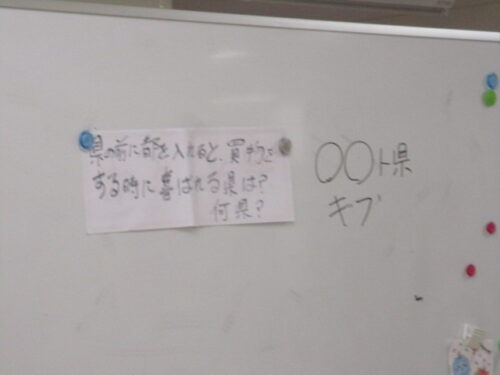 県の前に都を入れると、買物を
する時に喜ばれる県は?
何県?
〇〇ト県
ギフ